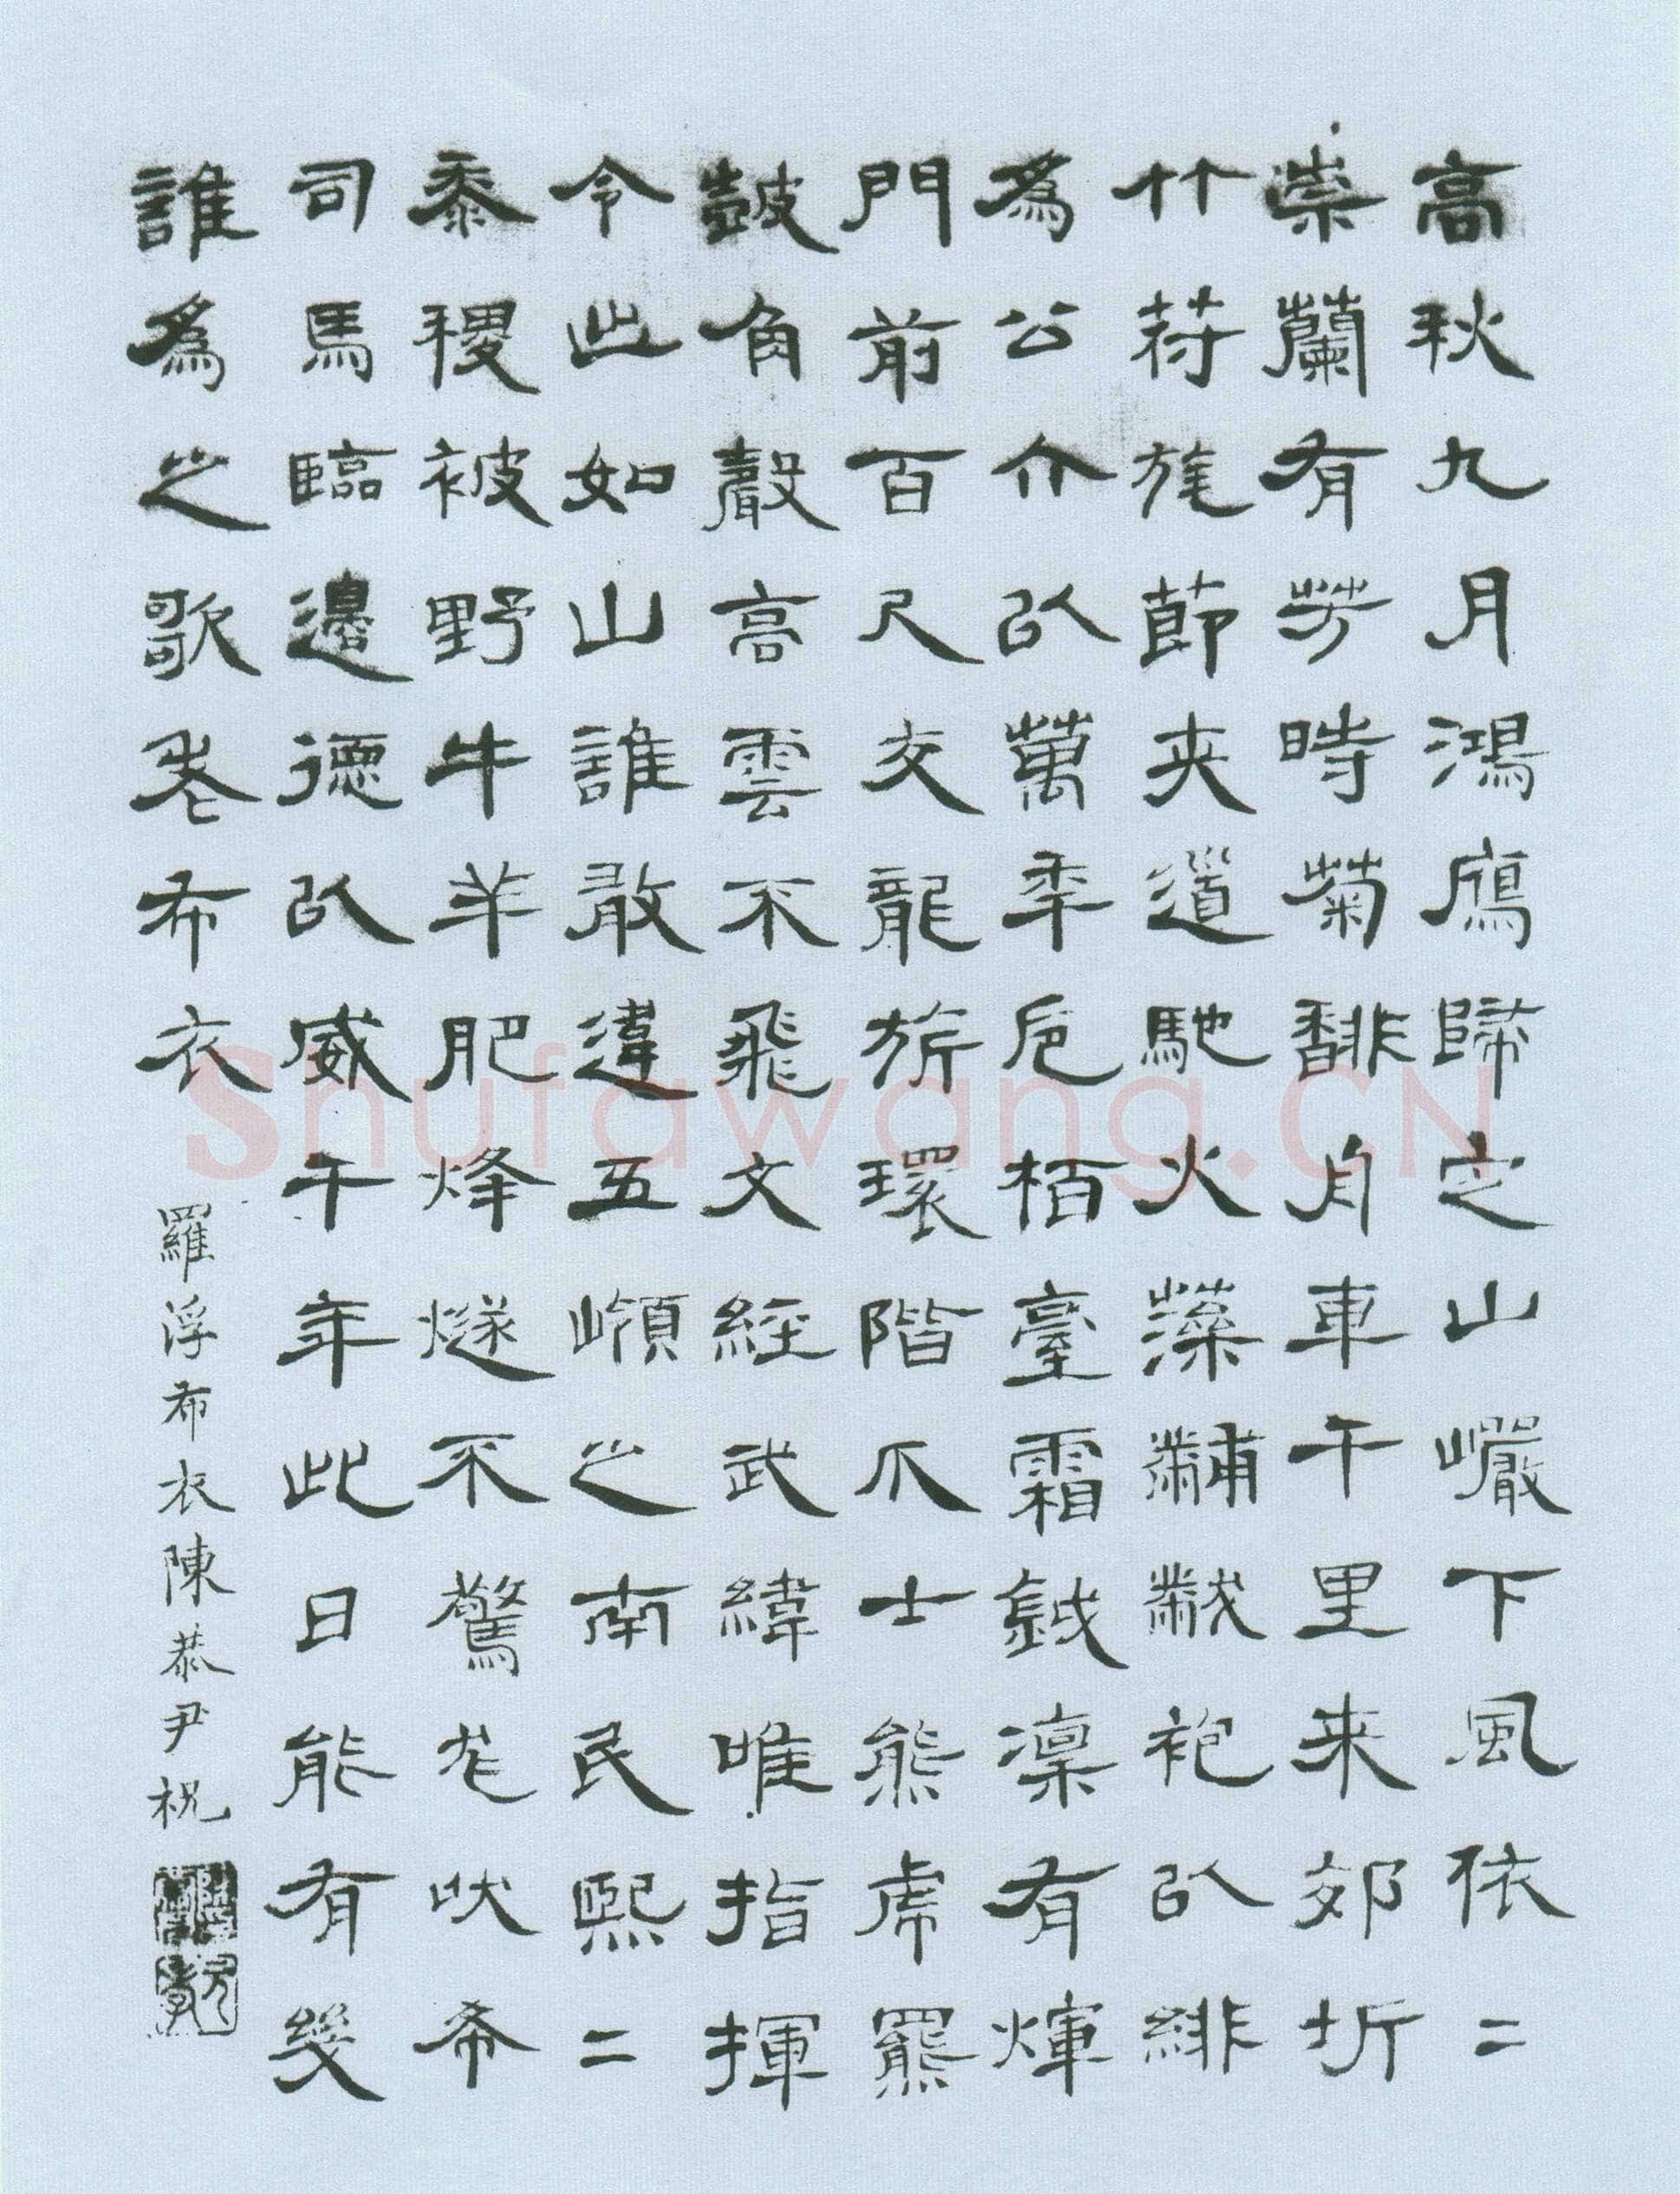 高秋九月鴻鴈歸之山巖下風依二
崇蘭有芳時菊馡月車千里来郊圻
竹符旄節夾道馳火藻黼黻袍以緋
為公介以萬年卮栢臺霜鉞凜有煇
門前百尺交龍旂環階爪士熊虎羆
鼓角聲高雲不飛文經武緯唯指揮
令此如山誰敢違五嶺之南民熙二
黍稷被野牛羊肥烽燧不驚尨吠希
司馬臨邊德以威千年此日能有幾
誰為之歌老布衣
羅浮布衣陳恭尹祝
Shufawang.CN